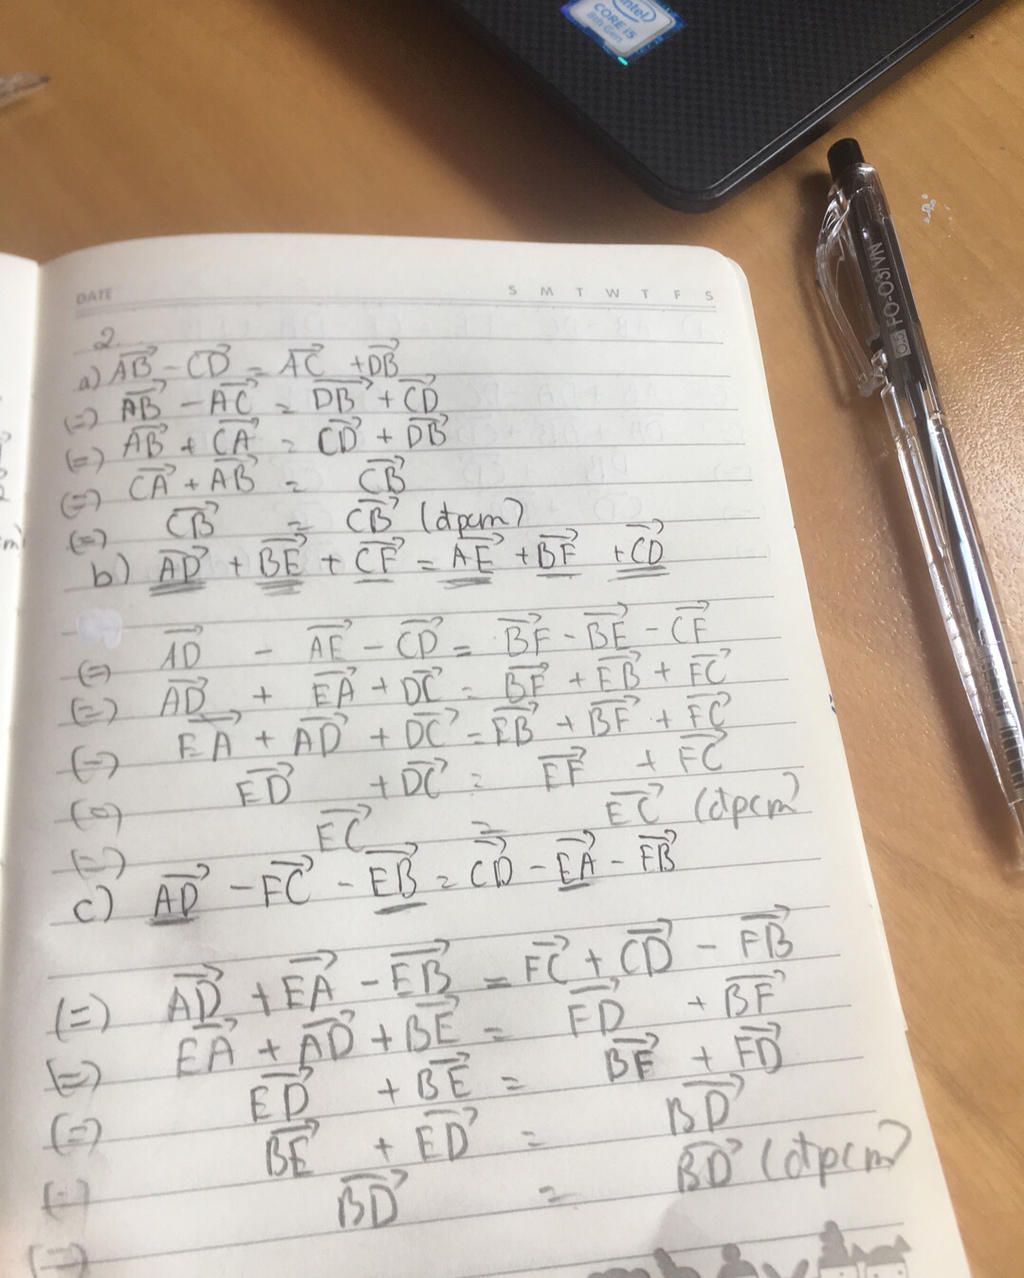 intel
CORE i5
8th Gen
FO-03/VN
DATE S M T W T F S
2.
a) $\overrightarrow{AB} - \overrightarrow{CD} = \overrightarrow{AC} + \overrightarrow{DB}$
(=) $\overrightarrow{AB} - \overrightarrow{AC} = \overrightarrow{DB} + \overrightarrow{CD}$
(=) $\overrightarrow{AB} + \overrightarrow{CA} = \overrightarrow{CD} + \overrightarrow{DB}$
(=) $\overrightarrow{CA} + \overrightarrow{AB} = \overrightarrow{CB}$
(=) $\overrightarrow{CB} = \overrightarrow{CB}$ (đpcm)
b) $\overrightarrow{AD} + \overrightarrow{BE} + \overrightarrow{CF} = \overrightarrow{AE} + \overrightarrow{BF} + \overrightarrow{CD}$
(=) $\overrightarrow{AD} - \overrightarrow{AE} - \overrightarrow{CD} = \overrightarrow{BF} - \overrightarrow{BE} - \overrightarrow{CF}$
(=) $\overrightarrow{AD} + \overrightarrow{EA} + \overrightarrow{DC} = \overrightarrow{BF} + \overrightarrow{EB} + \overrightarrow{FC}$
(=) $\overrightarrow{EA} + \overrightarrow{AD} + \overrightarrow{DC} = \overrightarrow{EB} + \overrightarrow{BF} + \overrightarrow{FC}$
(=) $\overrightarrow{ED} + \overrightarrow{DC} = \overrightarrow{EF} + \overrightarrow{FC}$
(=) $\overrightarrow{EC} = \overrightarrow{EC}$ (đpcm)
c) $\overrightarrow{AD} - \overrightarrow{FC} - \overrightarrow{EB} = \overrightarrow{CD} - \overrightarrow{EA} - \overrightarrow{FB}$
(=) $\overrightarrow{AD} + \overrightarrow{EA} - \overrightarrow{EB} = \overrightarrow{FC} + \overrightarrow{CD} - \overrightarrow{FB}$
(=) $\overrightarrow{EA} + \overrightarrow{AD} + \overrightarrow{BE} = \overrightarrow{FD} + \overrightarrow{BF}$
(=) $\overrightarrow{ED} + \overrightarrow{BE} = \overrightarrow{BF} + \overrightarrow{FD}$
(=) $\overrightarrow{BE} + \overrightarrow{ED} = \overrightarrow{BD}$
(=) $\overrightarrow{BD} = \overrightarrow{BD}$ (đpcm)